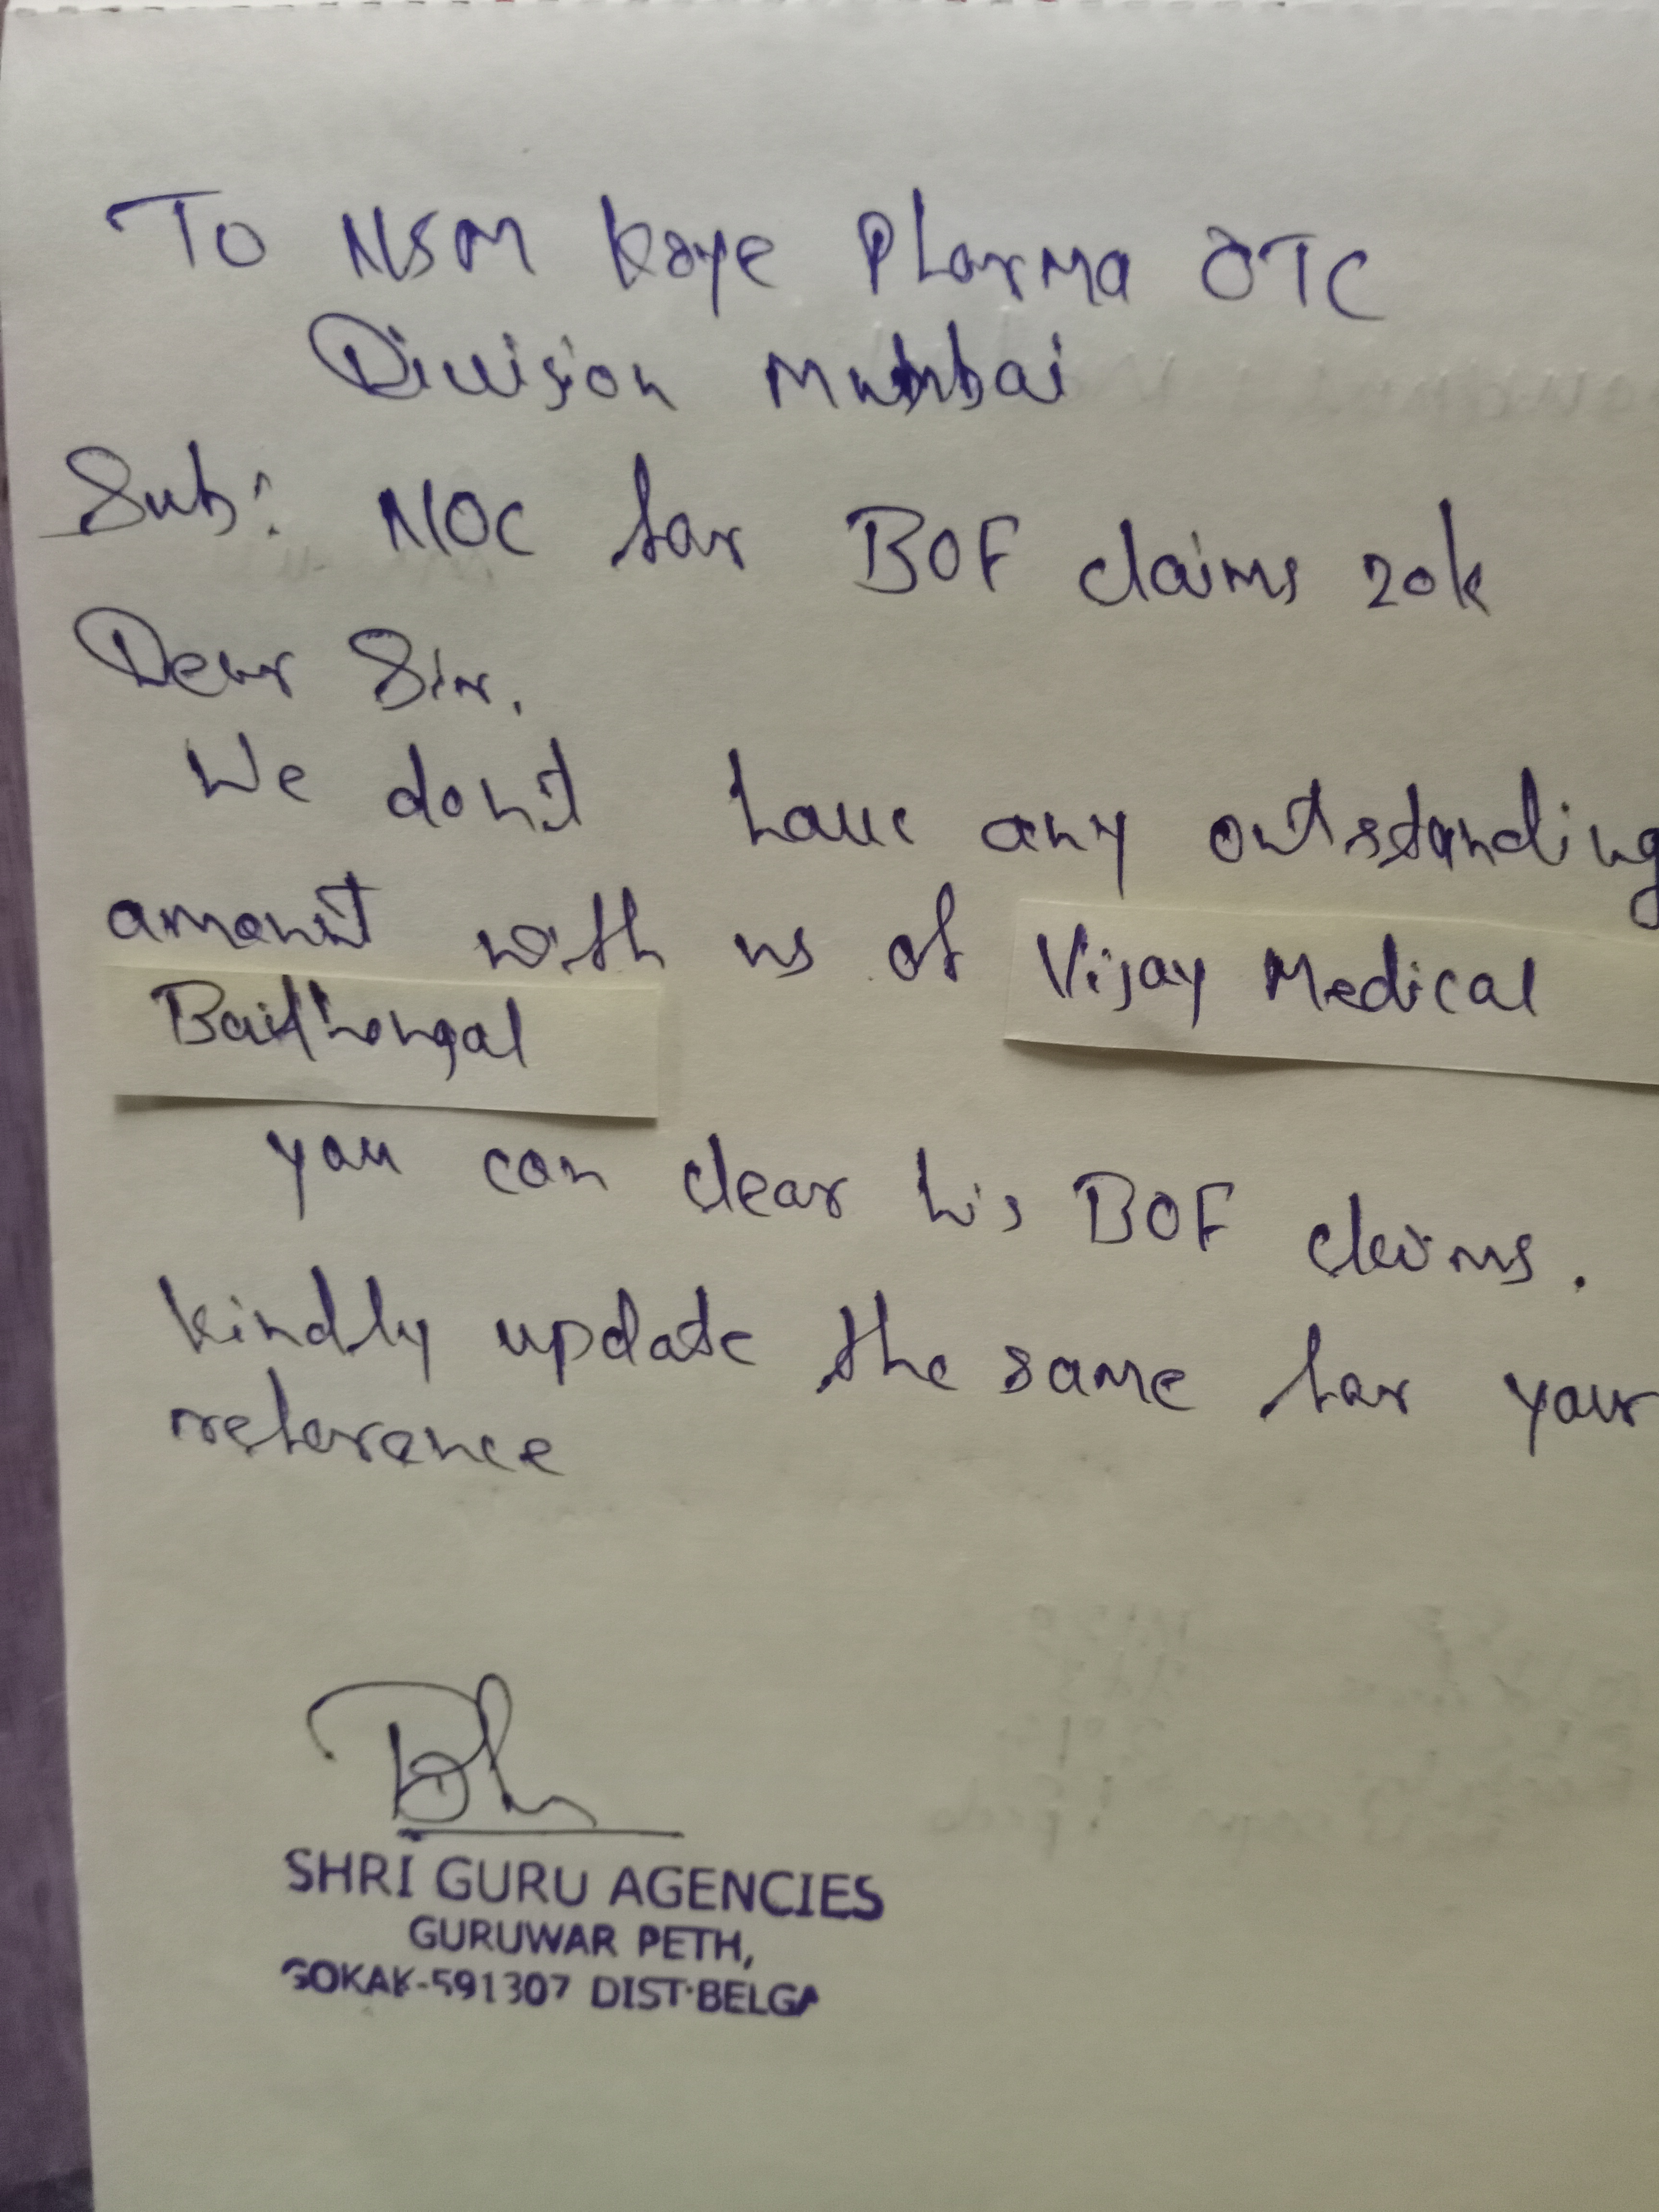 To NSM Koye Pharma OTC
Division Mumbai
Sub: NOC for BOF claims 20k
Dear Sir,
We don't have any outstanding
amount with us of Vijay Medical
Bailhongal
you can clear his BOF claims.
kindly update the same for your
reference
SHRI GURU AGENCIES
GURUWAR PETH,
GOKAK-591307 DIST:BELGA